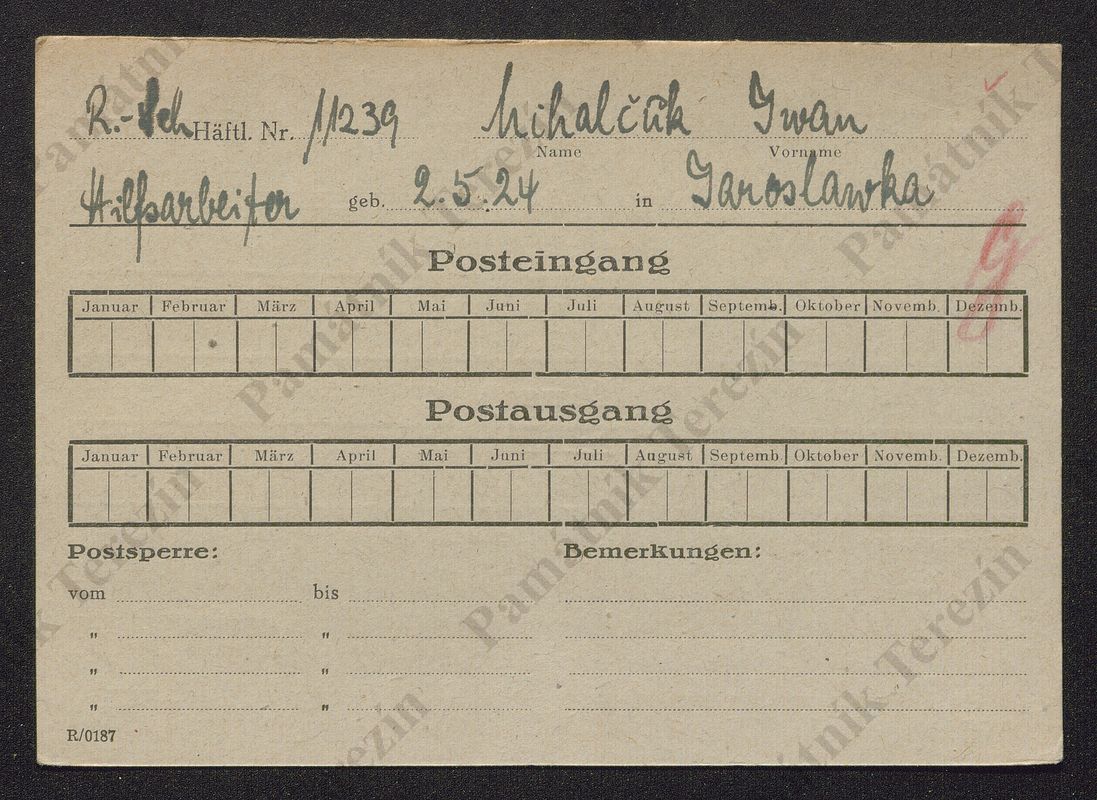 R.-Sch Häftl. Nr. 11239 Mihalčuk Iwan
Name Vorname
Hilfsarbeiter geb. 2.5.24 in Jaroslawka
Posteingang
Januar Februar März April Mai Juni Juli August Septemb. Oktober Novemb. Dezemb.
Postausgang
Januar Februar März April Mai Juni Juli August Septemb. Oktober Novemb. Dezemb.
Postsperre: Bemerkungen:
vom bis
" "
" "
" "
R/0187
Památník Terezín